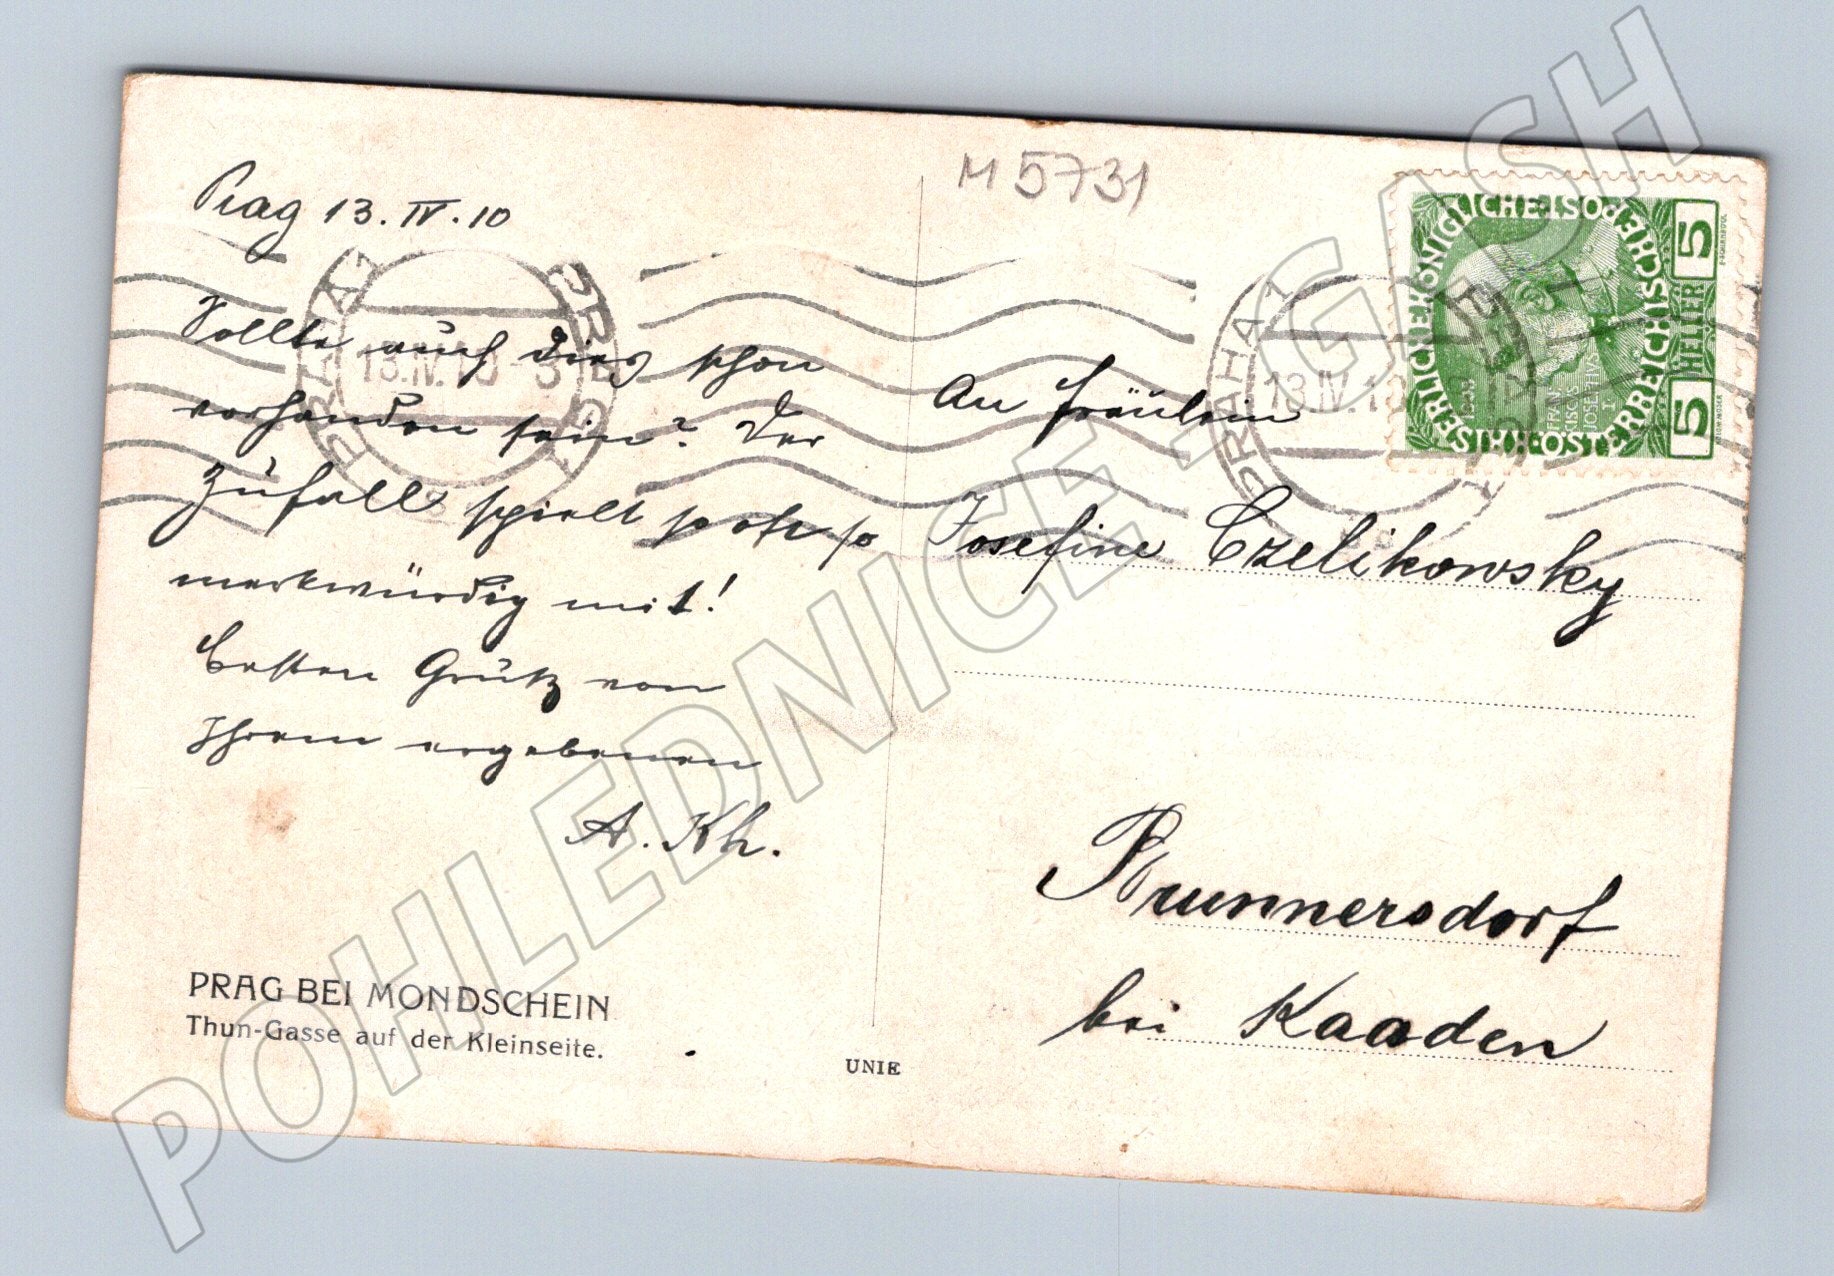 Prag 13. IV. 10
Sollte auch dies schon
vorhanden sein? Der
Zufall spielt ja oft so
merkwürdig mit!
Besten Gruß von
Ihrem ergebenen
A. Kh.
PRAG BEI MONDSCHEIN
Thun-Gasse auf der Kleinseite.
UNIE
M 5731
An Fräulein
Josefine Czelikowsky
Brunnersdorf
bei Kaaden
PRAHA 1
13.IV.10
PRAHA 1
13.IV.10
PRAG 1
KAISERLICHEKÖNIGLICHEÖSTERREICHISCHEPOST
5 HELLER 5
FRANCISCUS
JOSEPHVS I
1908
POHLEDNICE - GASH